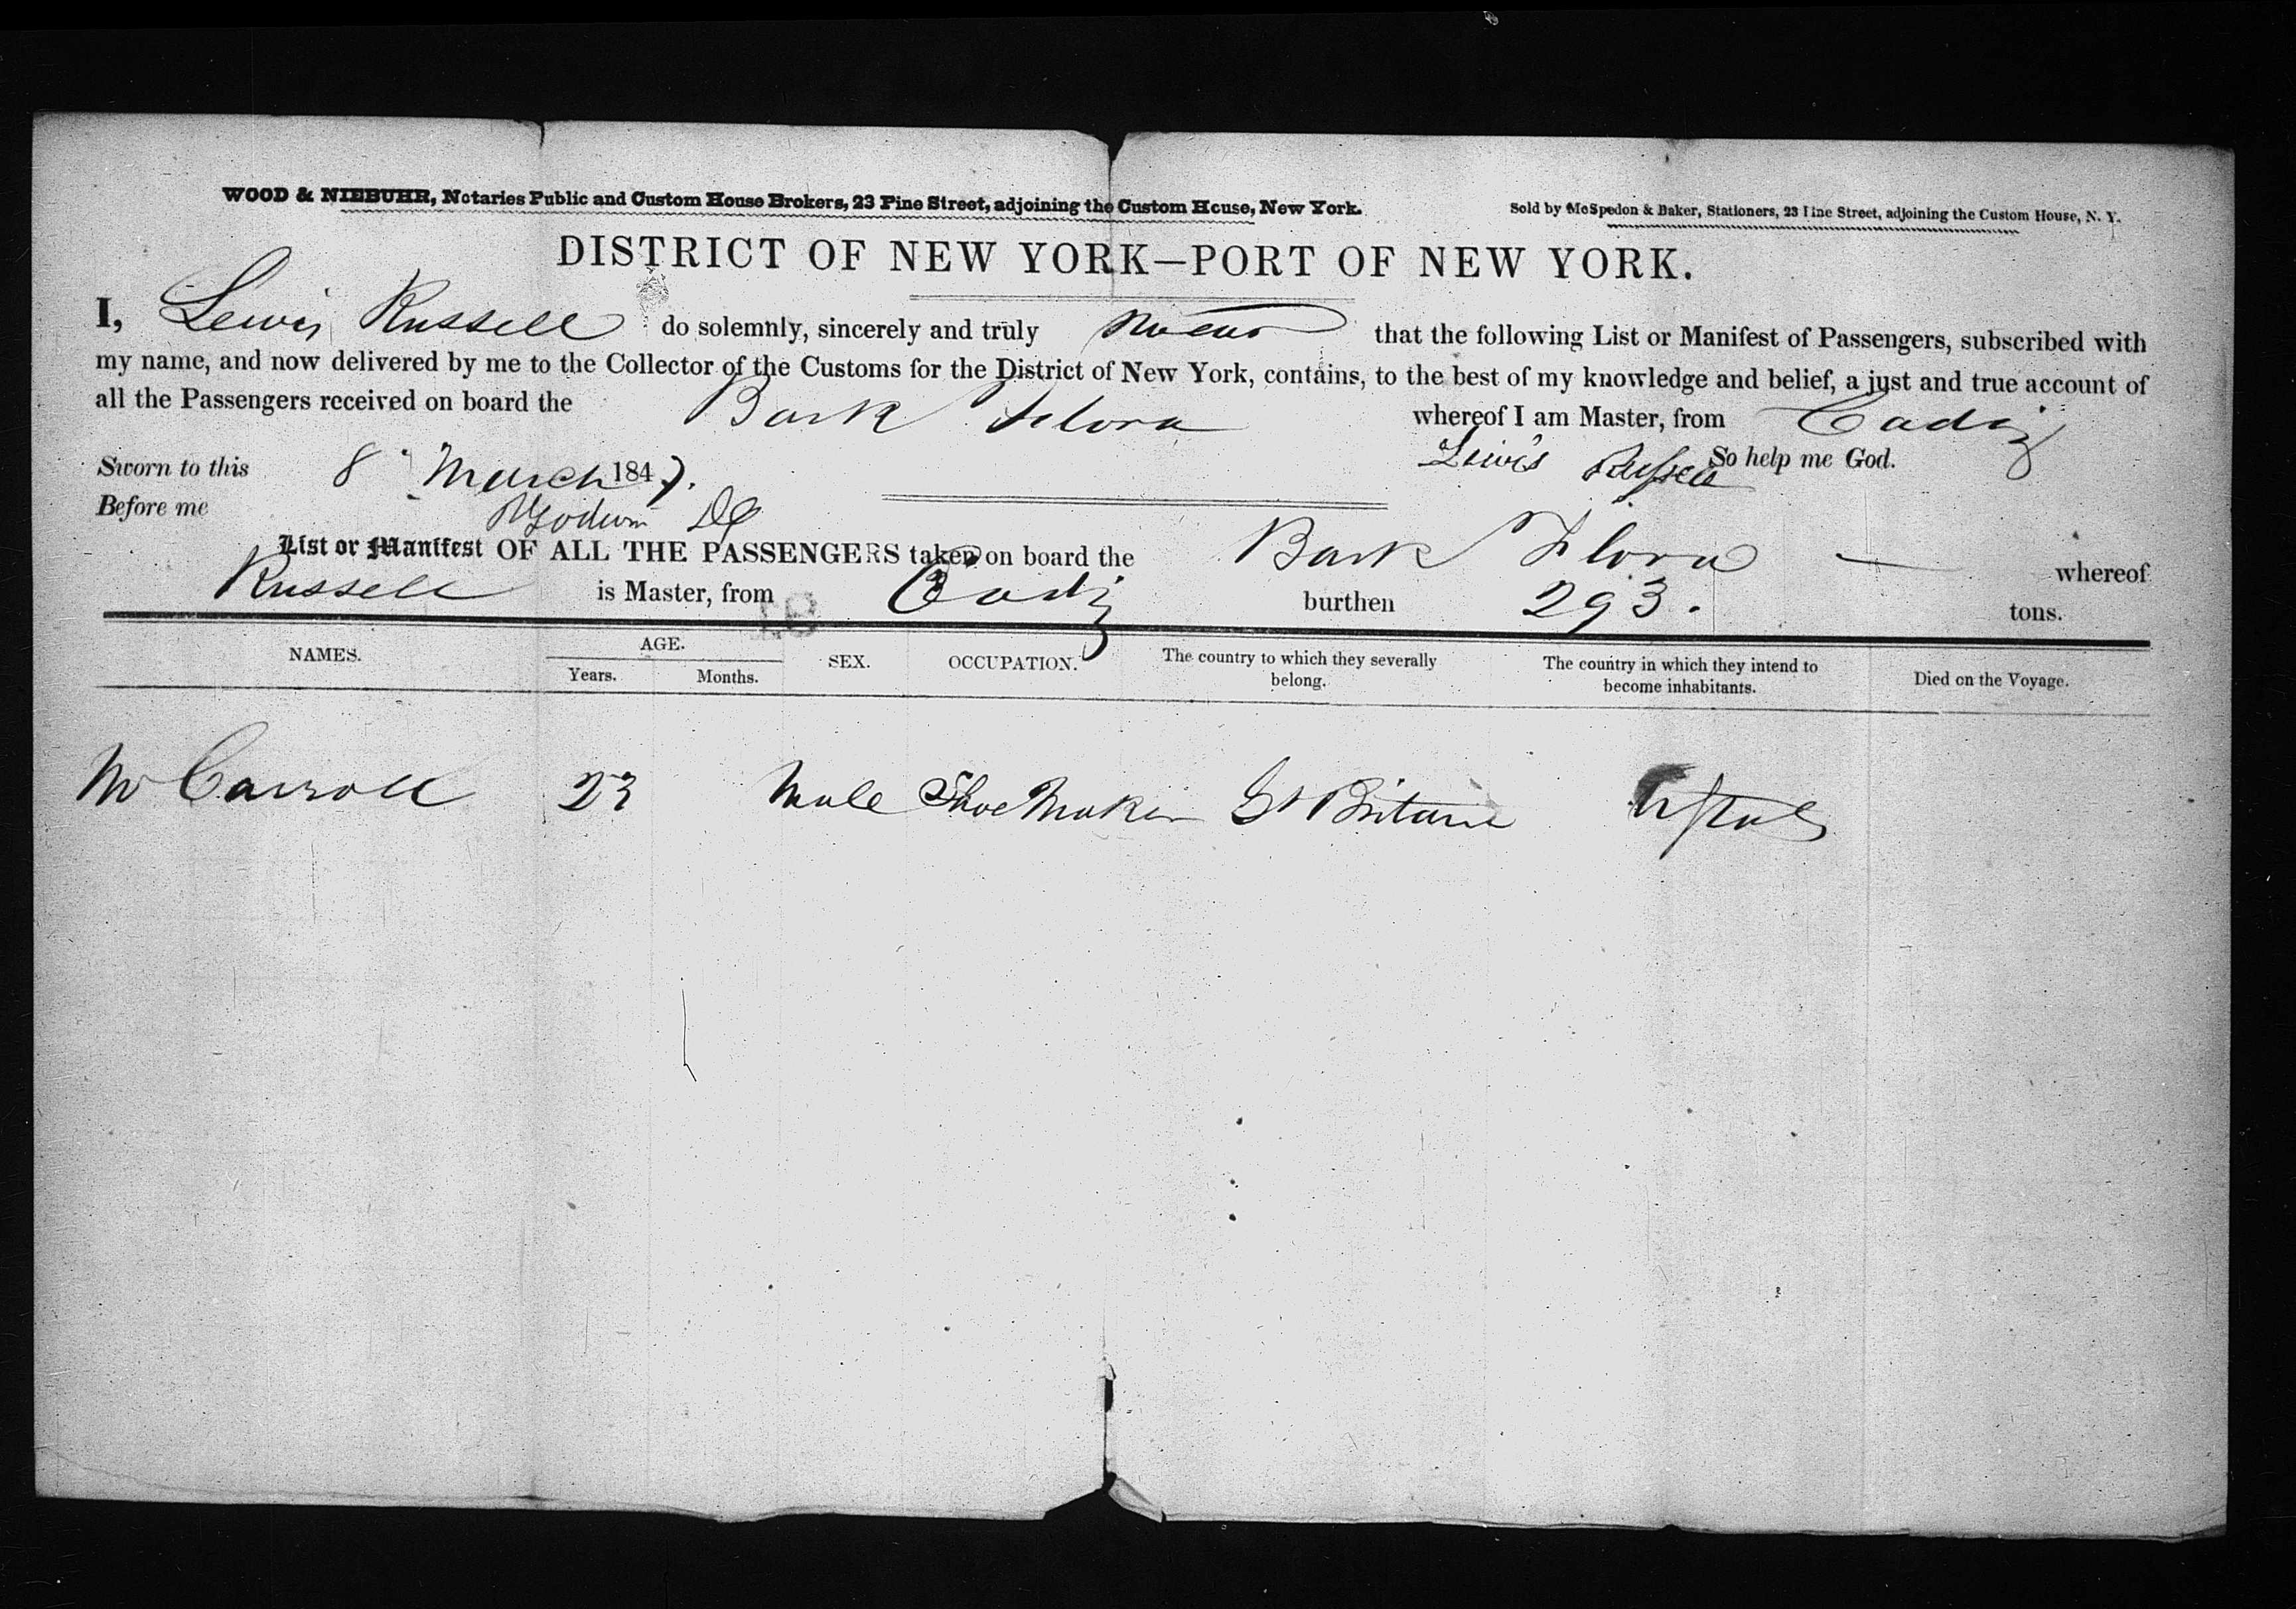 WOOD & NIEBUHR, Notaries Public and Custom House Brokers, 23 Pine Street, adjoining the Custom House, New York.
Sold by McSpedon & Baker, Stationers, 23 Pine Street, adjoining the Custom House, N. Y.
DISTRICT OF NEW YORK—PORT OF NEW YORK.
I, Lewis Russell do solemnly, sincerely and truly swear that the following List or Manifest of Passengers, subscribed with
my name, and now delivered by me to the Collector of the Customs for the District of New York, contains, to the best of my knowledge and belief, a just and true account of
all the Passengers received on board the Bark Flora whereof I am Master, from Cadiz
Sworn to this 8 March 1847. Lewis Russell So help me God.
Before me
List or Manifest OF ALL THE PASSENGERS taken on board the Bark Flora — whereof
Russell is Master, from Cadiz burthen 293. tons.
NAMES. AGE. Years. Months. SEX. OCCUPATION. The country to which they severally belong. The country in which they intend to become inhabitants. Died on the Voyage.
Carroll 23 Male Shoe Maker Gt Britain U States